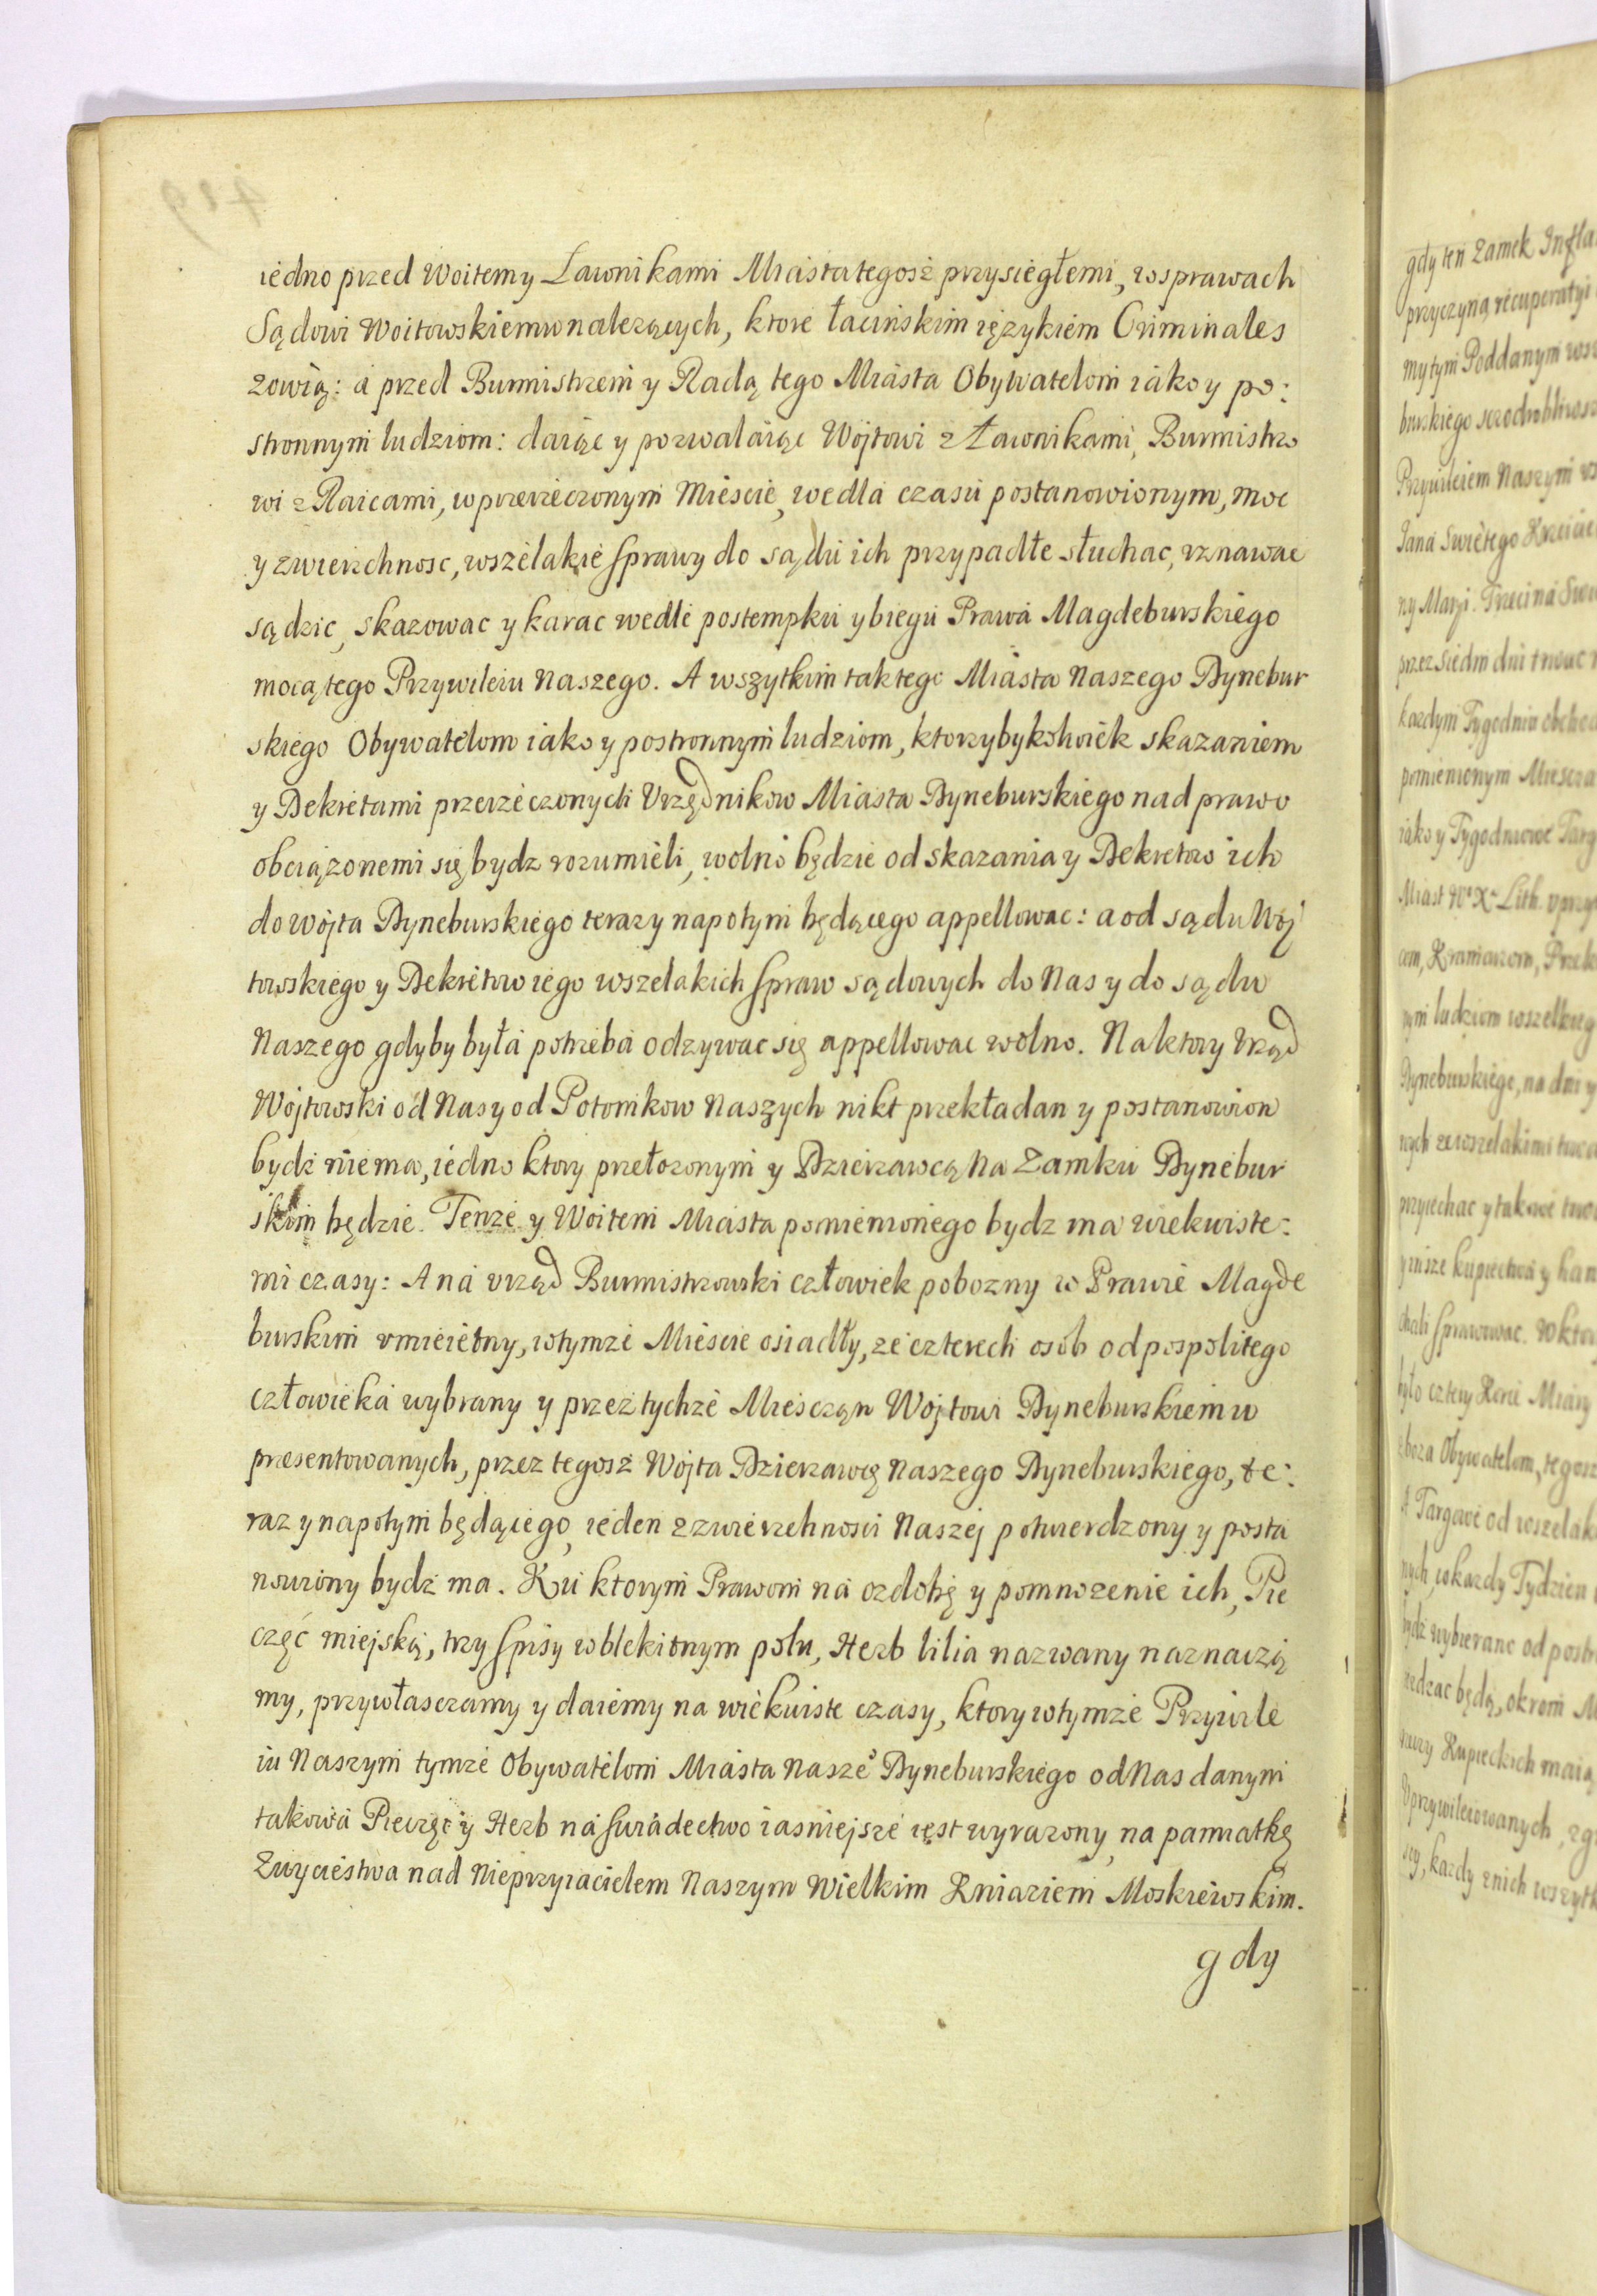 iedno przed Woitem y Ławnikami Miasta tegosż przysięgłemi, w sprawach
Sądowi Woitowskiemu należących, ktore łacińskim ięzykiem Criminales
zowią: á przed Burmistrzem y Radą tego Miásta Obywatelom iáko y po:
stronnym ludziom: daiąc y pozwalaiąc Wójtowi z Ławnikami, Burmistrzo
wi z Raicami, w przerzeczonym Mieście, wedla czasu postanowionym, moc
y zwierzchnosc, wszelakie sprawy do sądu ich przypadłe słuchac, vznawac
sądzic, skazowac y karac wedle postempku y biegu Prawa Magdeburskiego
mocą tego Przywileiu Naszego. A wszytkim tak tego Miásta Naszego Dynebur
skiego Obywatelom iako y postronnym ludziom, ktorzybykolwiek skazaniem
y Dekretami przerzeczonych Vrzędnikow Miásta Dyneburskiego nad prawo
obciązonemi się bydz rozumieli, wolno będzie od skazania y Dekretow ich
do Wójta Dyneburskiego teraz y napotym będącego appellowac: a od sądu Wój
towskiego y Dekretow iego wszelakich spraw sądowych do Nas y do sądu
Naszego gdyby byłá potrzeba odzywac się appellowac wolno. Na ktory Vrząd
Wójtowski od Nas y od Potomkow Naszych nikt przekładan y postanowion
bydź nie ma, iedno ktory przełozonym y Dzierzawcą Na Zamku Dynebur
skim będzie. Tenze y Woitem Miasta pomienionego bydz ma wiekuiste:
mi czasy: A ná vrząd Burmistrzowski człowiek pobozny w Prawie Magde
burskim vmieiętny, w tymze Mieście osiadły, ze czterech osób od pospolitego
człowieká wybrany y przez tychze Miesczan Wójtowi Dyneburskiemu
presentowanych, przez tegosz Wójta Dzierzawcę Naszego Dyneburskiego, te:
raz y napotym będącego, ieden z zwierzchnosci Naszej potwierdzony y posta
nowiony bydź ma. Ku ktorym Prawom ná ozdobę y pomnozenie ich, Pie
częć miejską, trzy spisy w blekitnym polu, Herb lilia nazwany naznaczą
my, przywłasczamy y daiemy na wiekuiste czasy, ktory w tymze Przywile
iu Naszym tymze Obywatelom Miásta Nasze° Dyneburskiego od Nas danym
takowá Pieczęć y Herb ná swiádectwo iasniejsze iest wyrazony, na pamiatkę
Zwycięstwa nad Nieprzyiacielem Naszym Wielkim Kniaziem Moskiewskim.
gdy
gdy ten Zamek Infla
przyczyną recuperatyi
my tym Poddanym wsz
burskiego
Przywileiem Naszym
Janá Swiętego Krzciciel
ny Maryi. Trzeci ná Swi
przez siedm dni trwac
kazdym Tygodniu obchod
pomienionym Miescza
iáko y Tygodniowe Targ
Miast Wᵒ Xᵃ Lith.
com, Kramarzom, Przek
nym ludziom wszelkieg
Dyneburskiego, na dni y
nych ze wszelakimi
przyiechac y takowe
y insze kupiectwá y han
chcieli sprawowac. W ktor
było cztery Miáry
zboza Obywatelom, tegosz
A Targowe od wszelak
nych, w kazdy Tydzien
bydź wybierane od postr
będą, okrom
Kupieckich maią
Vprzywileiowanych, zg
się, kazdy z nich wszytk